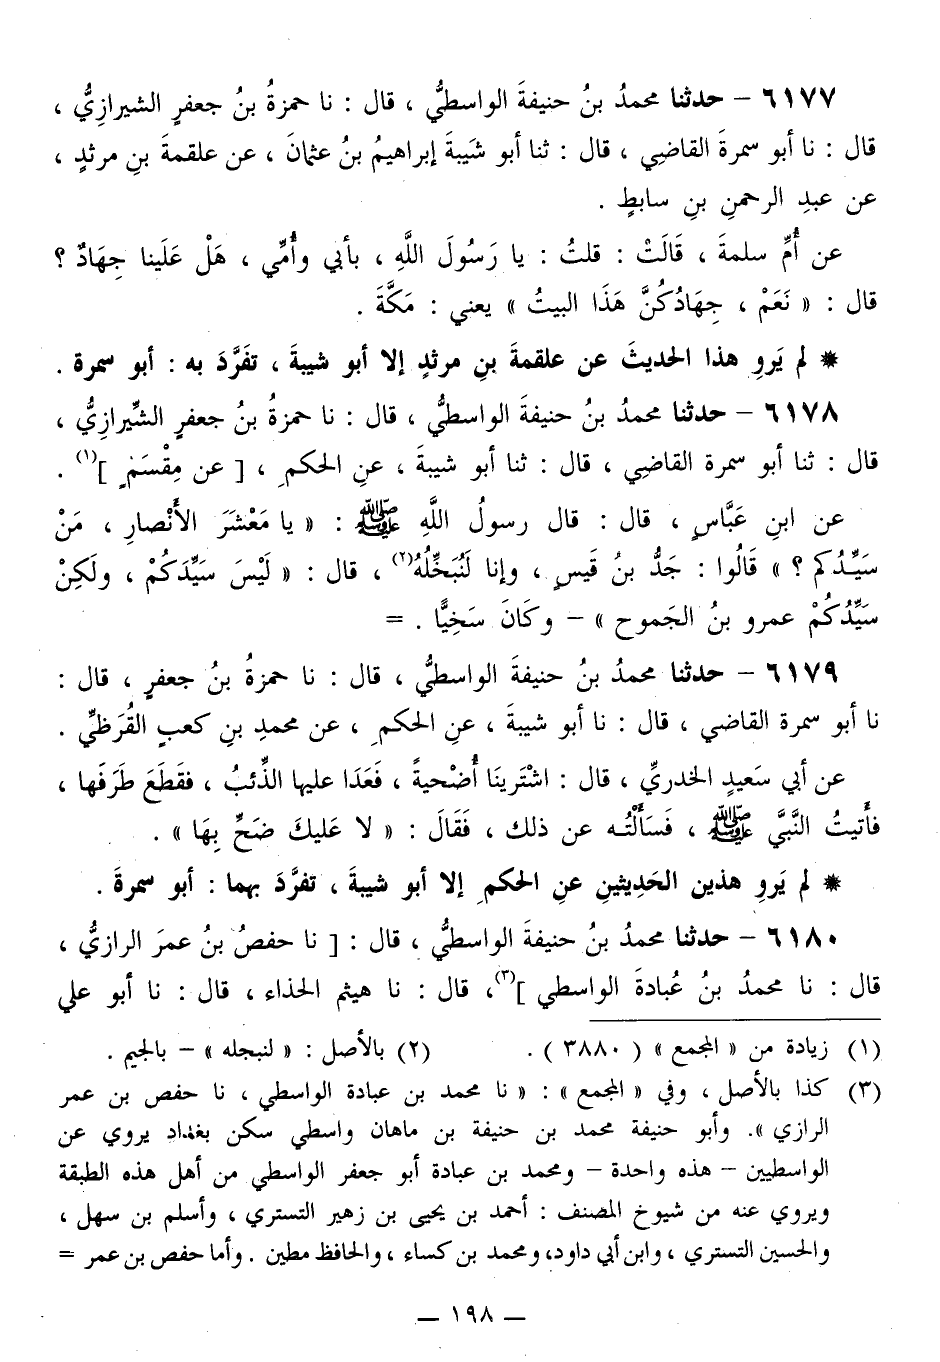 ٦١٧٧ – حدثنا محمدُ بنُ حنيفةَ الواسطيُّ ، قال : نا حمزةُ بنُ جعفرٍ الشيرازِيُّ ،
قال : نا أبو سمرةَ القاضِي ، قال : ثنا أبو شَيبةَ إبراهيمُ بنُ عثمانَ ، عن علقمةَ بنِ مرثدٍ ،
عن عبدِ الرحمنِ بنِ سابطٍ .
عن أُمِّ سلمةَ ، قَالَتْ : قلتُ : يا رَسُولَ اللَّهِ ، بأبي وأُمِّي ، هَلْ عَلَينا جِهَادٌ ؟
قال : « نَعَمْ ، جِهَادُكُنَّ هَذَا البيتُ » يعني : مَكَّةَ .
* لم يَروِ هذا الحديثَ عن علقمةَ بنِ مرثدٍ إلا أبو شيبةَ ، تفَرَّدَ به : أبو سمرة .
٦١٧٨ – حدثنا محمدُ بنُ حنيفةَ الواسطيُّ ، قال : نا حمزةُ بنُ جعفرٍ الشِّيرازِيُّ ،
قال : ثنا أبو سمرة القاضِي ، قال : ثنا أبو شيبةَ ، عنِ الحكمِ ، [ عن مِقْسَمٍ ](١) .
عن ابنِ عَبَّاسٍ ، قال : قال رسولُ اللَّهِ ﷺ : « يا مَعْشَرَ الأَنْصارِ ، مَنْ
سَيِّدُكم ؟ » قَالُوا : جَدُّ بنُ قَيسٍ ، وإنا لَنُبَخِّلُهُ(٢) ، قال : « لَيْسَ سَيِّدَكُمْ ، ولَكِنْ
سَيِّدُكُمْ عمرو بنُ الجَموح » – وكَانَ سَخِيًّا . =
٦١٧٩ – حدثنا محمدُ بنُ حنيفةَ الواسطيُّ ، قال : نا حمزةُ بنُ جعفرٍ ، قال :
نا أبو سمرة القاضي ، قال : نا أبو شيبةَ ، عنِ الحكمِ ، عن محمدِ بنِ كعبٍ القُرَظيِّ .
عن أبي سَعيدٍ الخدريِّ ، قال : اشْتَرينَا أُضْحيةً ، فَعَدَا عليها الذِّئبُ ، فقَطَعَ طَرَفَها ،
فأَتيتُ النَّبيَّ ﷺ ، فَسَأَلْتُه عن ذلك ، فَقَالَ : « لا عَليكَ ضَحِّ بِهَا » .
* لم يَروِ هذين الحَدِيثينِ عنِ الحكمِ إلا أبو شيبةَ ، تفرَّدَ بهما : أبو سمرةَ .
٦١٨٠ – حدثنا محمدُ بنُ حنيفةَ الواسطيُّ ، قال : [ نا حفصُ بنُ عمرَ الرازيُّ ،
قال : نا محمدُ بنُ عُبادةَ الواسطي ](٣)، قال : نا هيثم الحذاء ، قال : نا أبو علي
(١) زيادة من « المجمع » ( ٣٨٨٠ ) . (٢) بالأصل : « لنبجله » – بالجيم .
(٣) كذا بالأصل ، وفي « المجمع » : « نا محمد بن عبادة الواسطي ، نا حفص بن عمر
الرازي ». وأبو حنيفة محمد بن حنيفة بن ماهان واسطي سكن بغداد يروي عن
الواسطيين – هذه واحدة – ومحمد بن عبادة أبو جعفر الواسطي من أهل هذه الطبقة
ويروي عنه من شيوخ المصنف : أحمد بن يحيى بن زهير التستري ، وأسلم بن سهل ،
والحسين التستري ، وابن أبي داود، ومحمد بن كساء ، والحافظ مطين . وأما حفص بن عمر =
– ١٩٨ –